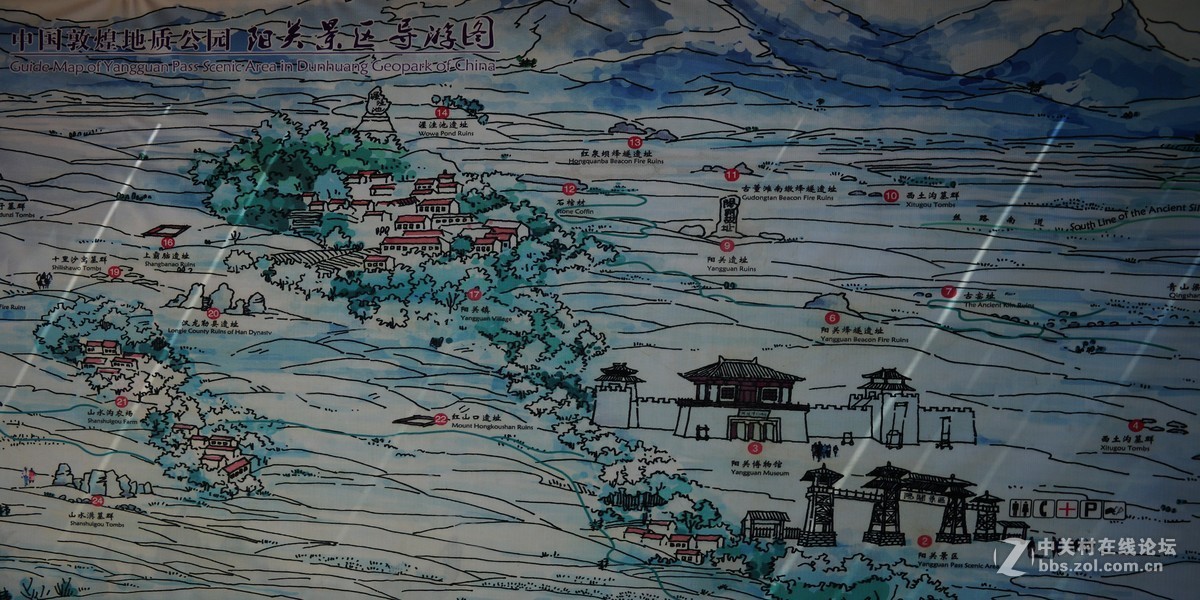 中国敦煌地质公园 阳关景区导游图
Guide Map of Yangguan Pass Scenic Area in Dunhuang Geopark of China
14
渥洼池遗址
Wowa Pond Ruins
13
红泉坝烽燧遗址
Hongquanba Beacon Fire Ruins
12
石棺材
Stone Coffin
11
古董滩南墩烽燧遗址
Gudongtan Beacon Fire Ruins
10
西土沟墓群
Xitugou Tombs
丝路南道
South Line of the Ancient
9
阳关遗址
Yangguan Ruins
墓群
Tombs
16
上霸脑遗址
Shangbanao Ruins
十里沙窝墓群
19
Shilishawo Tombs
17
阳关镇
Yangguan Village
20
汉龙勒县遗址
Longle County Ruins of Han Dynasty
Fire Ruins
7
古窑址
The Ancient Kiln Ruins
6
阳关烽燧遗址
Yangguan Beacon Fire Ruins
青山梁
21
山水沟农场
Shanshuigou Farm
22
红山口遗址
Mount Hongkoushan Ruins
3
阳关博物馆
Yangguan Museum
4
西土沟墓群
Xitugou Tombs
24
山水沟墓群
Shanshuigou Tombs
P
2
阳关景区
Yangguan Pass Scenic
中关村在线论坛
bbs.zol.com.cn